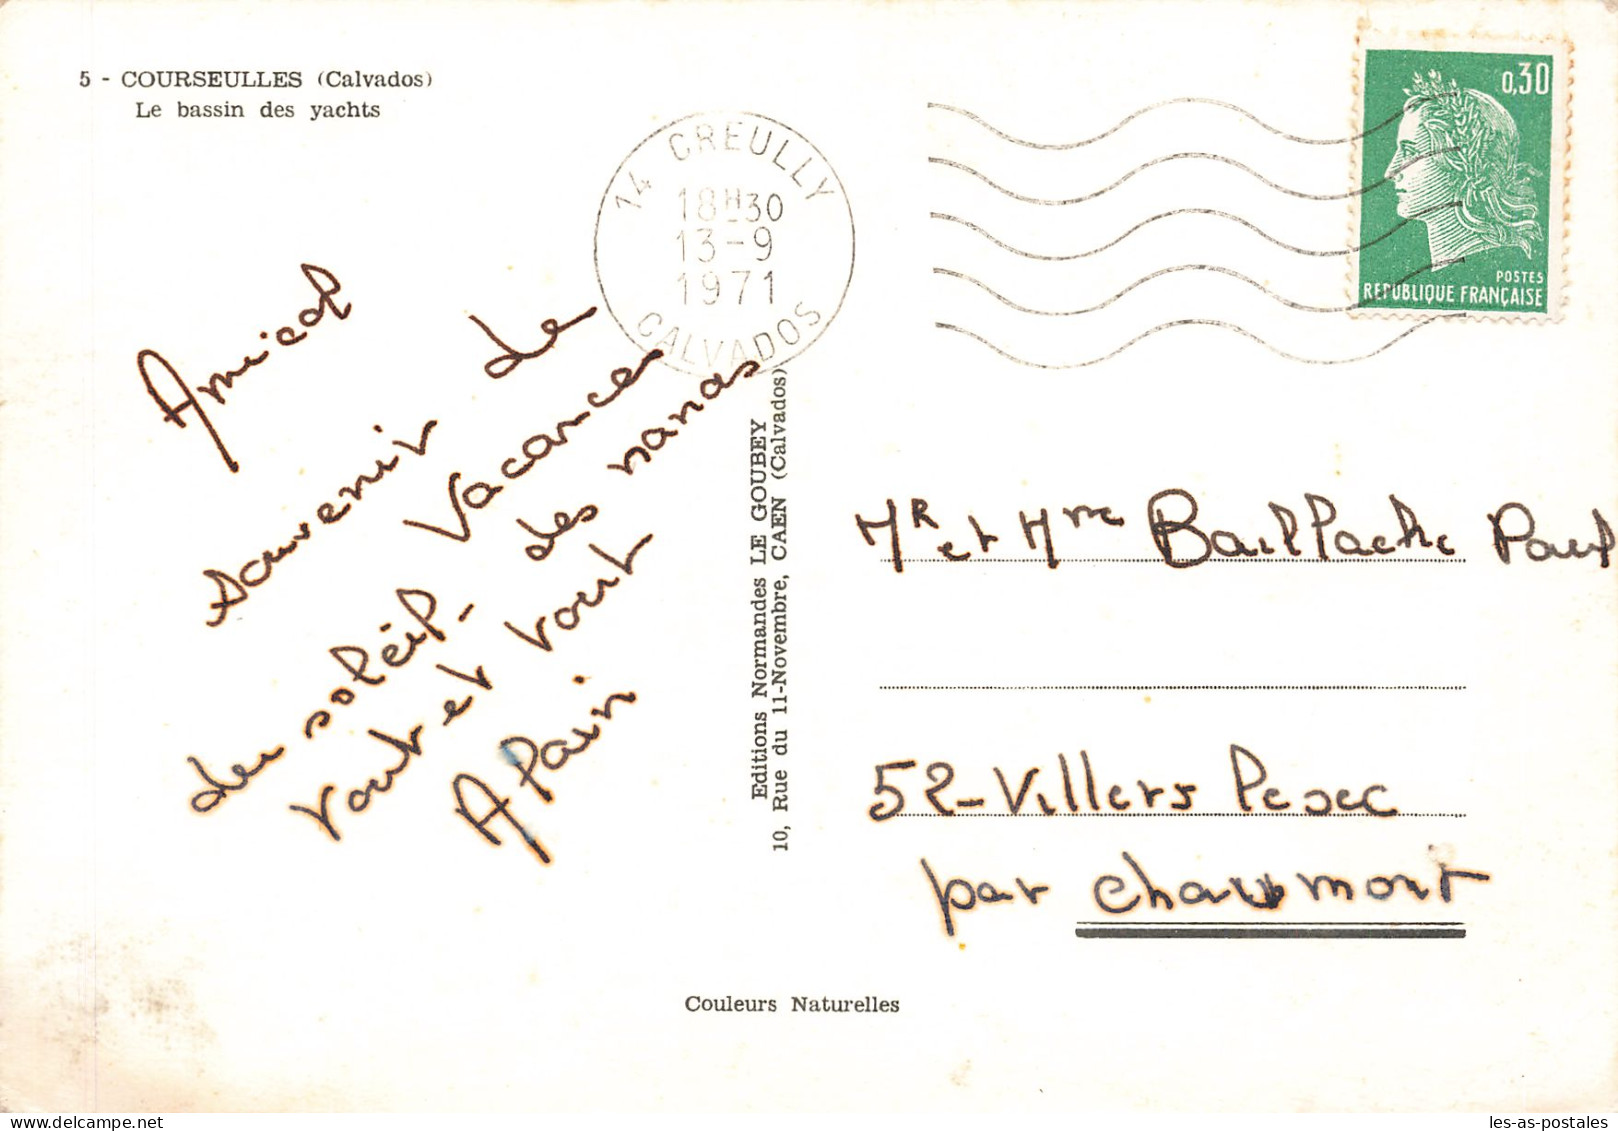 5 - COURSEULLES (Calvados)
Le bassin des yachts
14 CREULLY
18H30
13-9
1971
CALVADOS
0,30
POSTES
REPUBLIQUE FRANÇAISE
Amical
souvenir de
Vacances
du soleil - des nanas
vout et vout
Alain
Editions Normandes LE GOUBEY
10, Rue du 11-Novembre, CAEN (Calvados)
MR et Mme Baillache Paul
52-Villers le sec
par chaumont
Couleurs Naturelles
les-as-postales